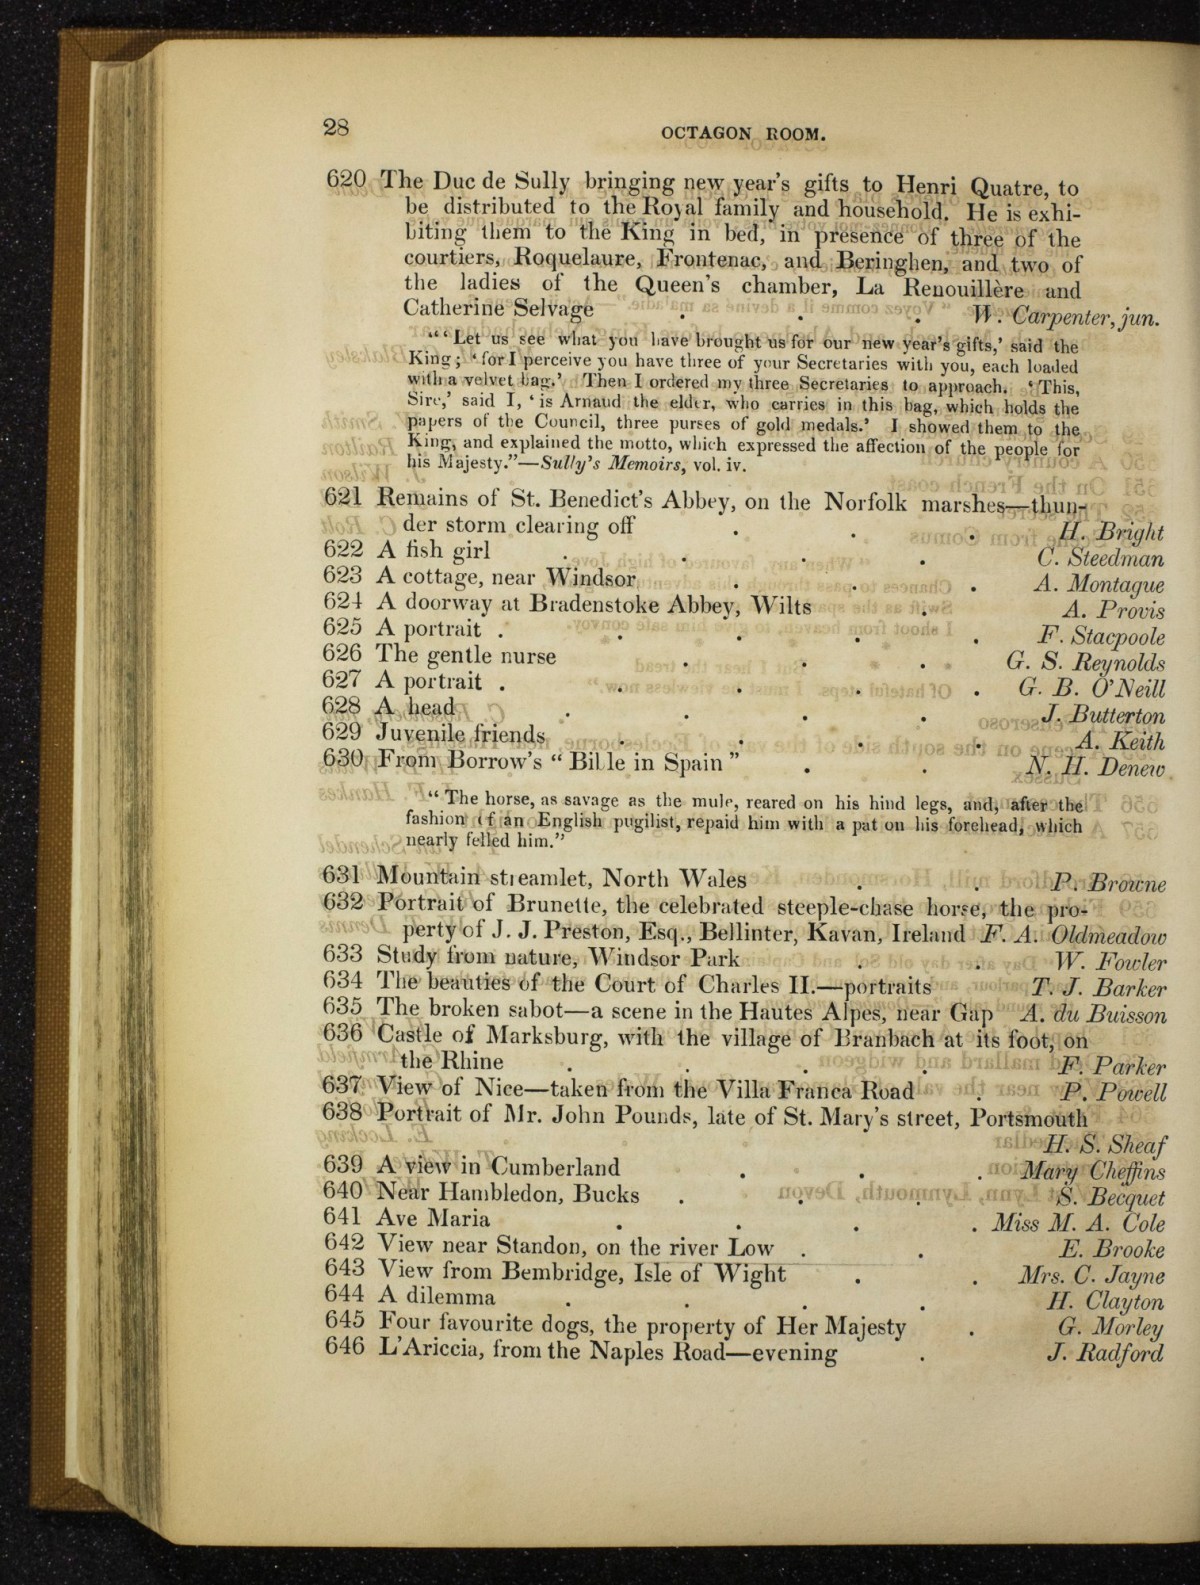 28
OCTAGON ROOM.
620 The Duc de Sully bringing new year's gifts to Henri Quatre, to
be distributed to the Royal family and household. He is exhi-
biting them to the King in bed, in presence of three of the
courtiers, Roquelaure, Frontenac, and Beringhen, and two of
the ladies of the Queen's chamber, La Renouillère and
Catherine Selvage . . . W. Carpenter, jun.
"'Let us see what you have brought us for our new year's gifts,' said the
King; 'for I perceive you have three of your Secretaries with you, each loaded
with a velvet bag.' Then I ordered my three Secretaries to approach. 'This,
Sire,' said I, 'is Arnaud the elder, who carries in this bag, which holds the
papers of the Council, three purses of gold medals.' I showed them to the
King, and explained the motto, which expressed the affection of the people for
his Majesty."—Sully's Memoirs, vol. iv.
621 Remains of St. Benedict's Abbey, on the Norfolk marshes—thun-
der storm clearing off . . . H. Bright
622 A fish girl . . . . C. Steedman
623 A cottage, near Windsor . . . A. Montague
624 A doorway at Bradenstoke Abbey, Wilts . A. Provis
625 A portrait . . . . . F. Stacpoole
626 The gentle nurse . . . G. S. Reynolds
627 A portrait . . . . . G. B. O'Neill
628 A head . . . . J. Butterton
629 Juvenile friends . . . . A. Keith
630 From Borrow's "Bible in Spain" . . N. H. Denew
"The horse, as savage as the mule, reared on his hind legs, and, after the
fashion of an English pugilist, repaid him with a pat on his forehead, which
nearly felled him."
631 Mountain streamlet, North Wales . . P. Browne
632 Portrait of Brunette, the celebrated steeple-chase horse, the pro-
perty of J. J. Preston, Esq., Bellinter, Kavan, Ireland F. A. Oldmeadow
633 Study from nature, Windsor Park . . W. Fowler
634 The beauties of the Court of Charles II.—portraits T. J. Barker
635 The broken sabot—a scene in the Hautes Alpes, near Gap A. du Buisson
636 Castle of Marksburg, with the village of Branbach at its foot, on
the Rhine . . . . F. Parker
637 View of Nice—taken from the Villa Franca Road . P. Powell
638 Portrait of Mr. John Pounds, late of St. Mary's street, Portsmouth
H. S. Sheaf
639 A view in Cumberland . . . Mary Cheffins
640 Near Hambledon, Bucks . . . S. Becquet
641 Ave Maria . . . . Miss M. A. Cole
642 View near Standon, on the river Low . . E. Brooke
643 View from Bembridge, Isle of Wight . . Mrs. C. Jayne
644 A dilemma . . . . H. Clayton
645 Four favourite dogs, the property of Her Majesty . G. Morley
646 L'Ariccia, from the Naples Road—evening . J. Radford